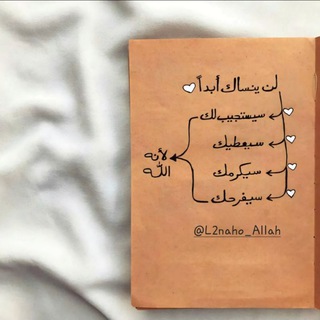 لن ينساك أبداً
سيستجيب لك
سيعطيك
سيكرمك
سيفرحك
لأنه
الله
@L2naho_Allah